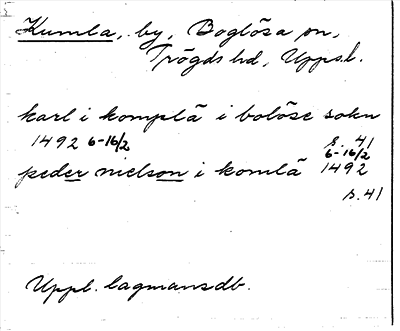 Kumla, by, Boglösa sn,
Trögds hd, Upps.l.
karl i komplä i bolöse sokn
1492 6-16/2 s. 41
peder nielson i komlä 6-16/2 1492
s. 41
Uppl. lagmansdb.